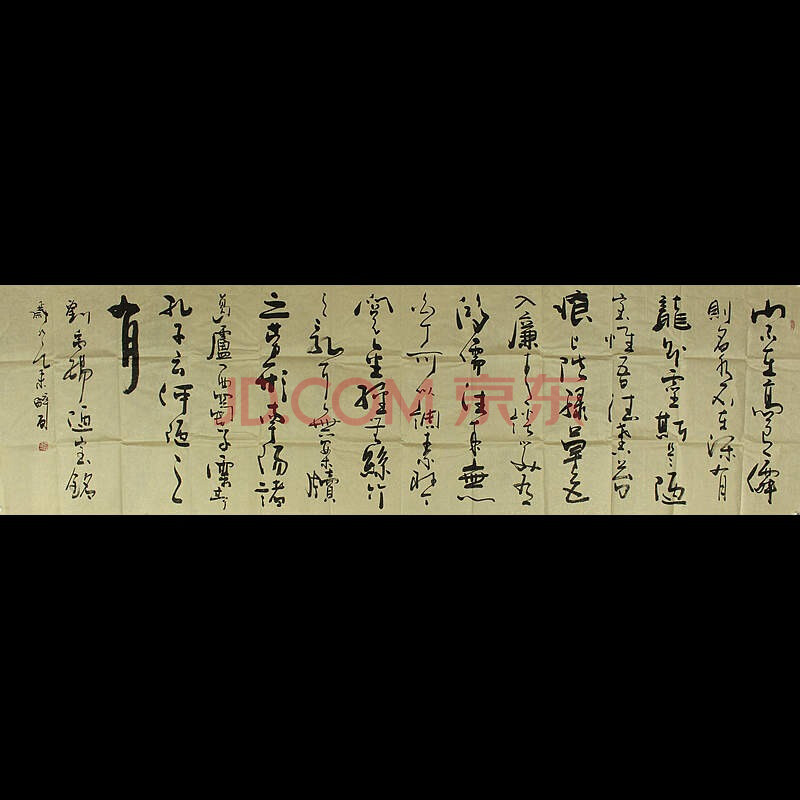 山不在高有僊
則名水不在深有
龍則靈斯是陋
室惟吾德馨苔
痕上階綠草色
入簾青談笑有
鴻儒往來無
白丁可以調素琴
閱金經無絲竹
之亂耳無案牘
之勞形南陽諸
葛廬西蜀子雲亭
孔子云何陋之
有
劉禹錫陋室銘
JD.COM 京东